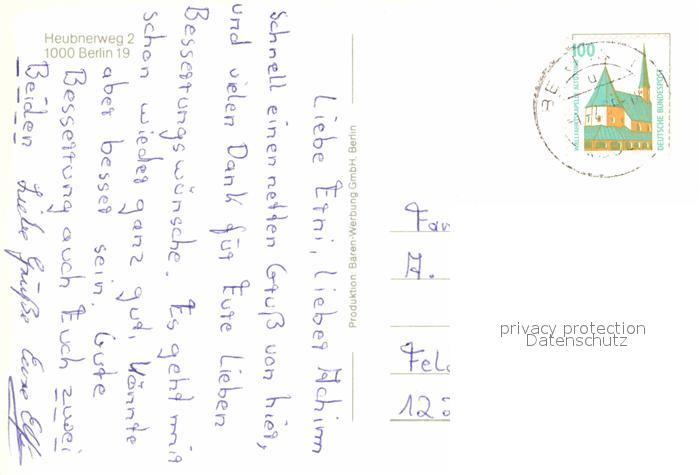 Heubnerweg 2
1000 Berlin 19
Liebe Erni, Lieber Achim
schnell einen netten Gruß von hier,
und vielen Dank für Eure lieben
Besserungswünsche. Es geht mir
schon wieder ganz gut, könnte
aber besser sein. Gute
Besserung auch Euch zwei
Beiden Liebe Grüße Eure Elfi
Produktion Bären-Werbung GmbH, Berlin
100
WALLFAHRTSKAPELLE ALTÖTTING
DEUTSCHE BUNDESPOST
BE
Fa
A.
Fel
12
privacy protection
Datenschutz